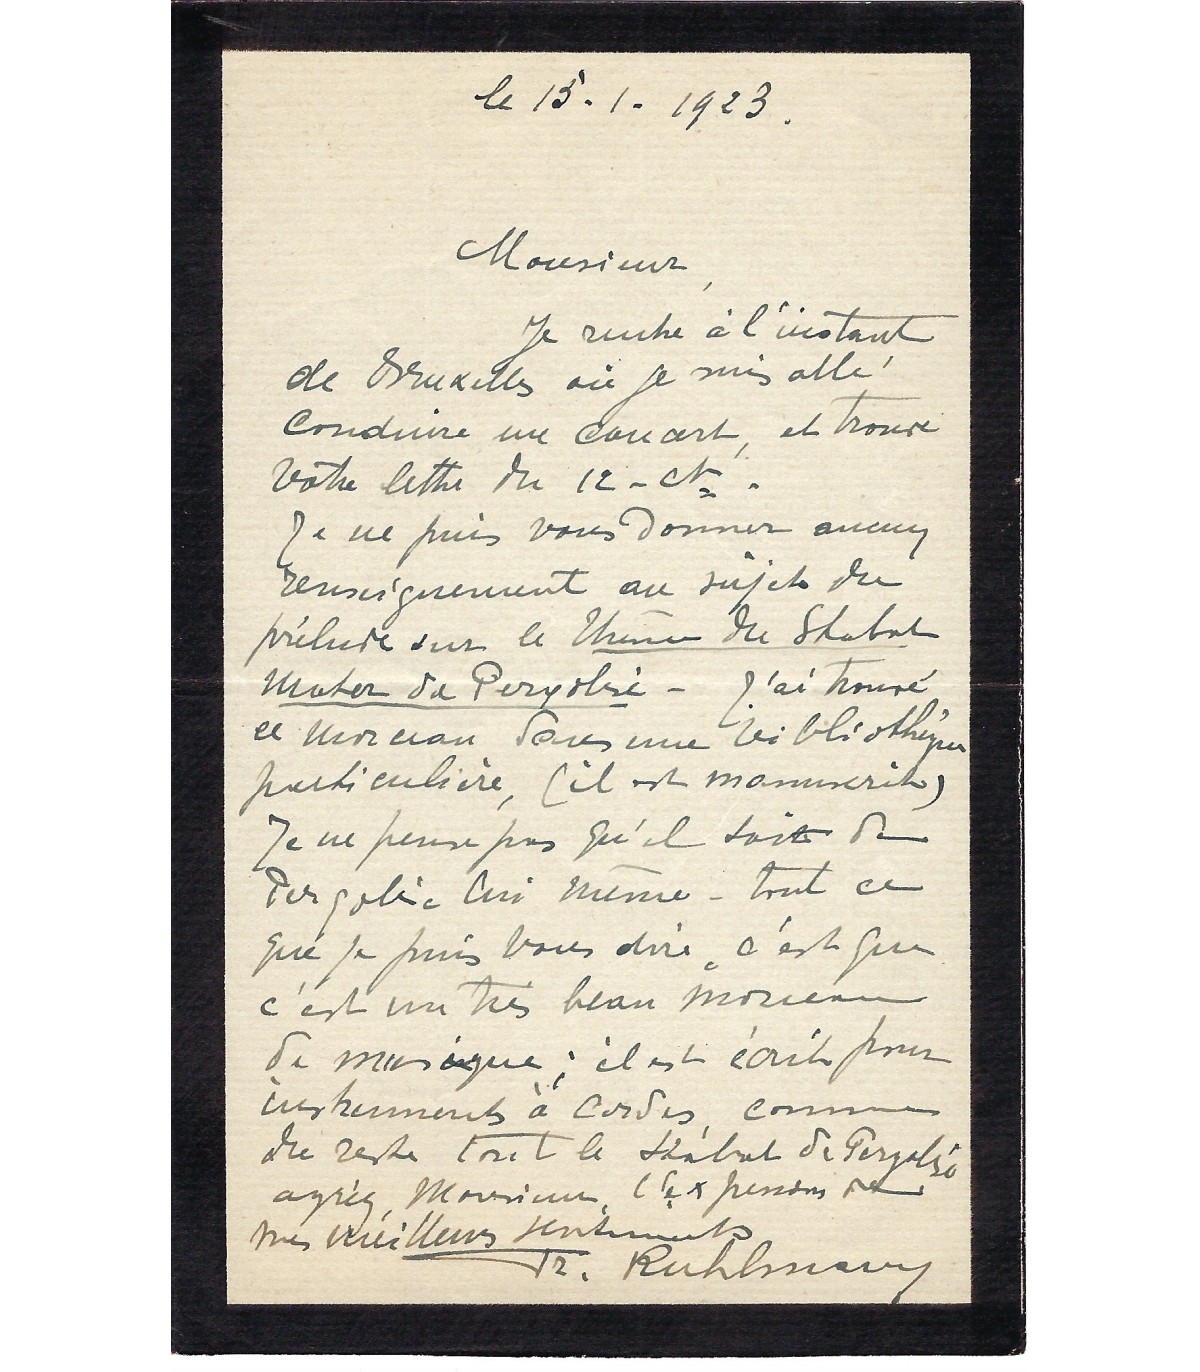 le 15-1-1923.
Monsieur,
Je rentre à l'instant
de Bruxelles où je suis allé
conduire un concert, et trouve
votre lettre du 12-ct.
Je ne puis vous donner aucun
renseignement au sujet du
prélude sur le Thème du Stabat
Mater de Pergolèse - J'ai trouvé
ce morceau dans une bibliothèque
particulière, (il est manuscrit)
Je ne pense pas qu'il soit de
Pergolèse lui même - tout ce
que je puis vous dire, c'est que
c'est un très beau morceau
de musique; il est écrit pour
instruments à cordes, comme
du reste tout le Stabat de Pergolèse
agréez, Monsieur, l'expression de
mes meilleurs sentiments
Fr. Ruhlmann